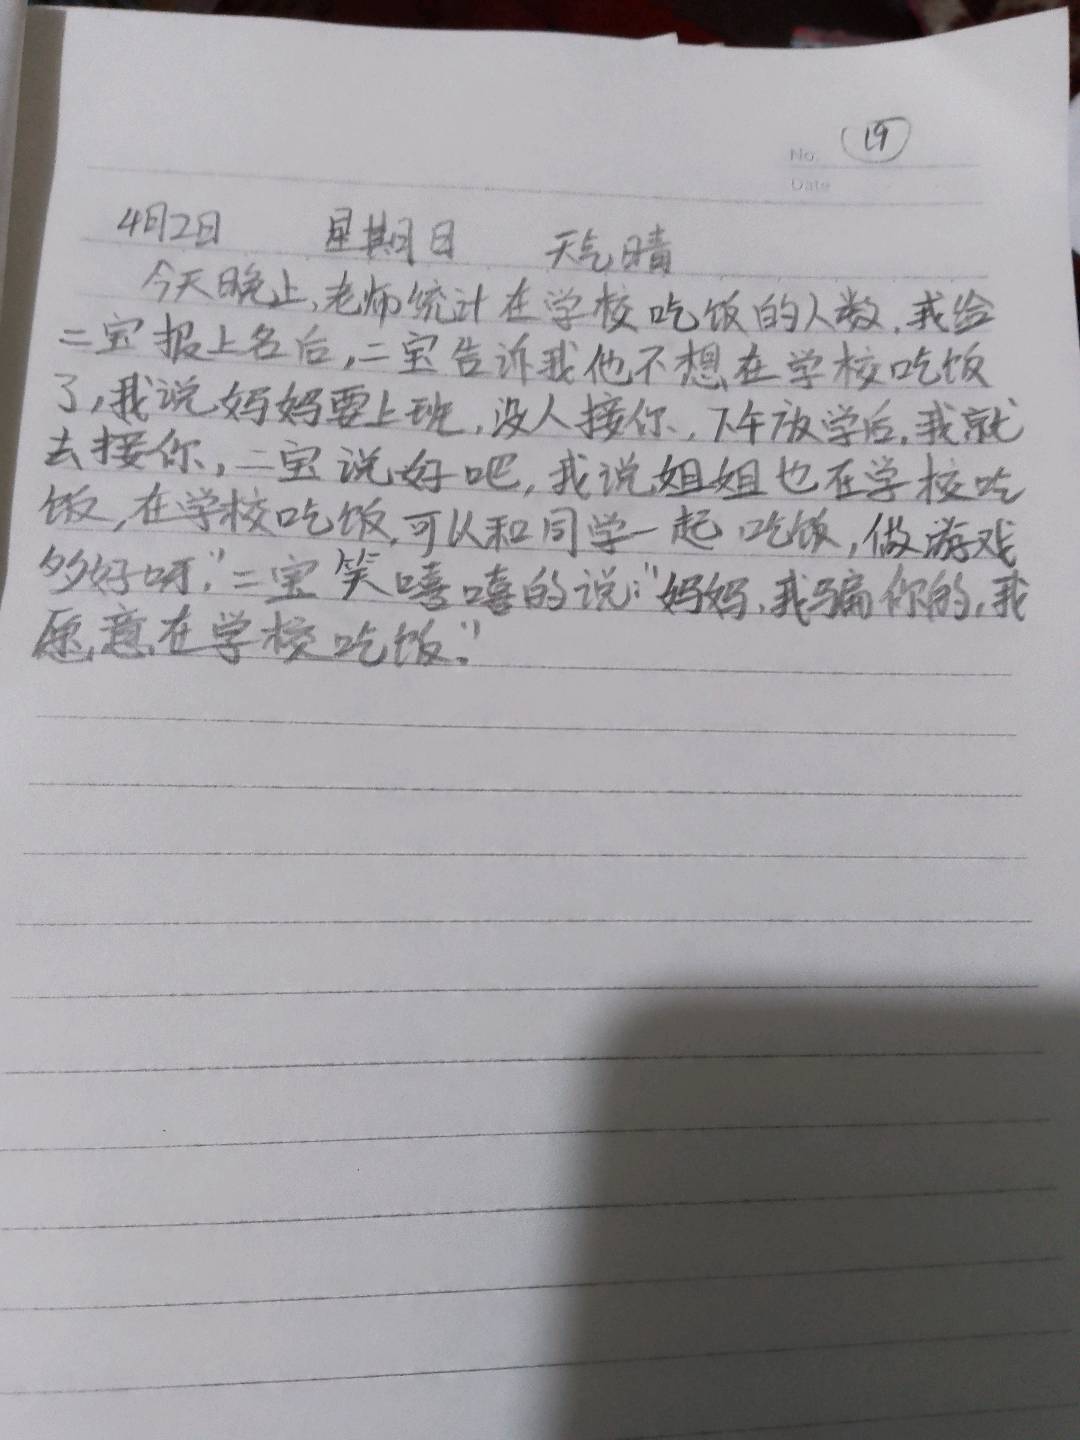 No. 19
Date
4月2日 星期日 天气晴
今天晚上,老师统计在学校吃饭的人数,我给
二宝报上名后,二宝告诉我他不想在学校吃饭
了,我说妈妈要上班,没人接你,下午放学后,我就
去接你,二宝说好吧,我说姐姐也在学校吃
饭,在学校吃饭,可以和同学一起吃饭,做游戏
多好呀."二宝笑嘻嘻的说:"妈妈,我骗你的,我
愿意在学校吃饭."